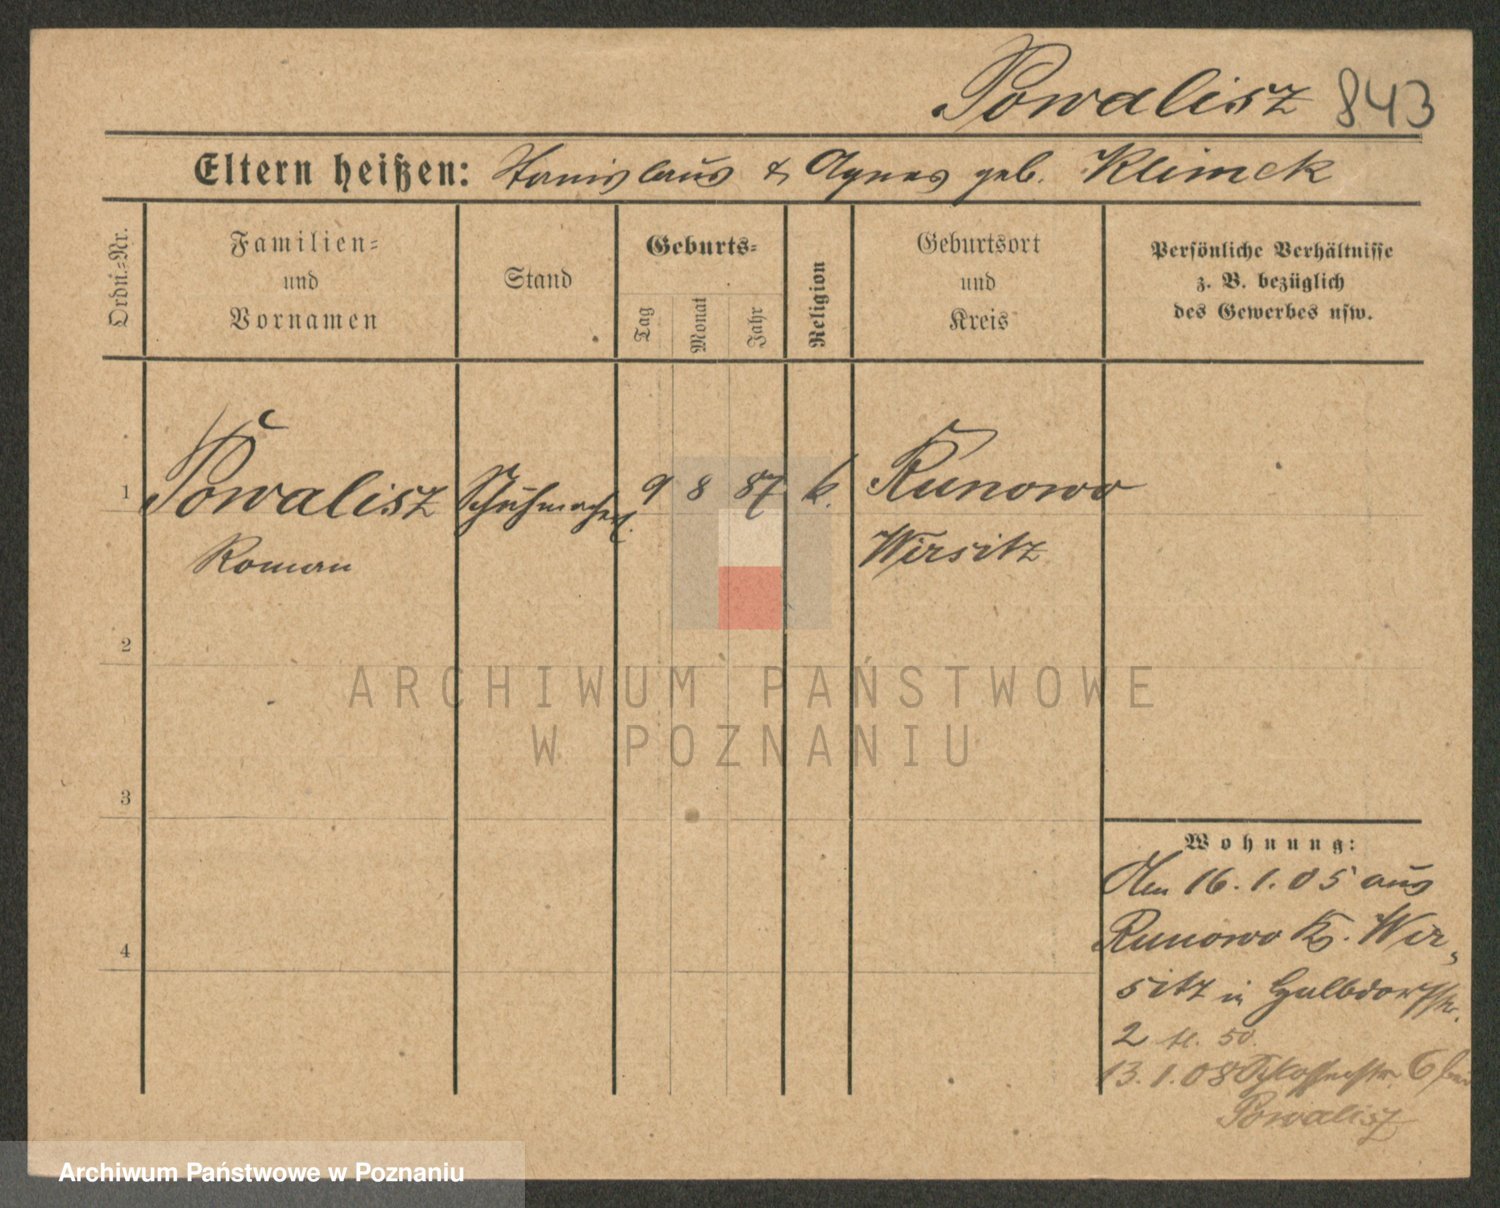 Powalisz 843
Eltern heißen: Stanislaus & Agnes geb. Klimek
Ordn.-Nr.
Familien-
und
Vornamen
Stand
Geburts-
Tag
Monat
Jahr
Religion
Geburtsort
und
Kreis
Persönliche Verhältnisse
z. B. bezüglich
des Gewerbes usw.
1 Powalisz Schuhmacherl. 9 8 87 k. Runowo
Roman Wirsitz
2
3
4
Wohnung:
Am 16.1.05 aus
Runowo Kr. Wir-
sitz in
2 50.
13.1.08 Schlosserstr. 6 bei
Powalisz
ARCHIWUM PAŃSTWOWE
W POZNANIU
Archiwum Państwowe w Poznaniu